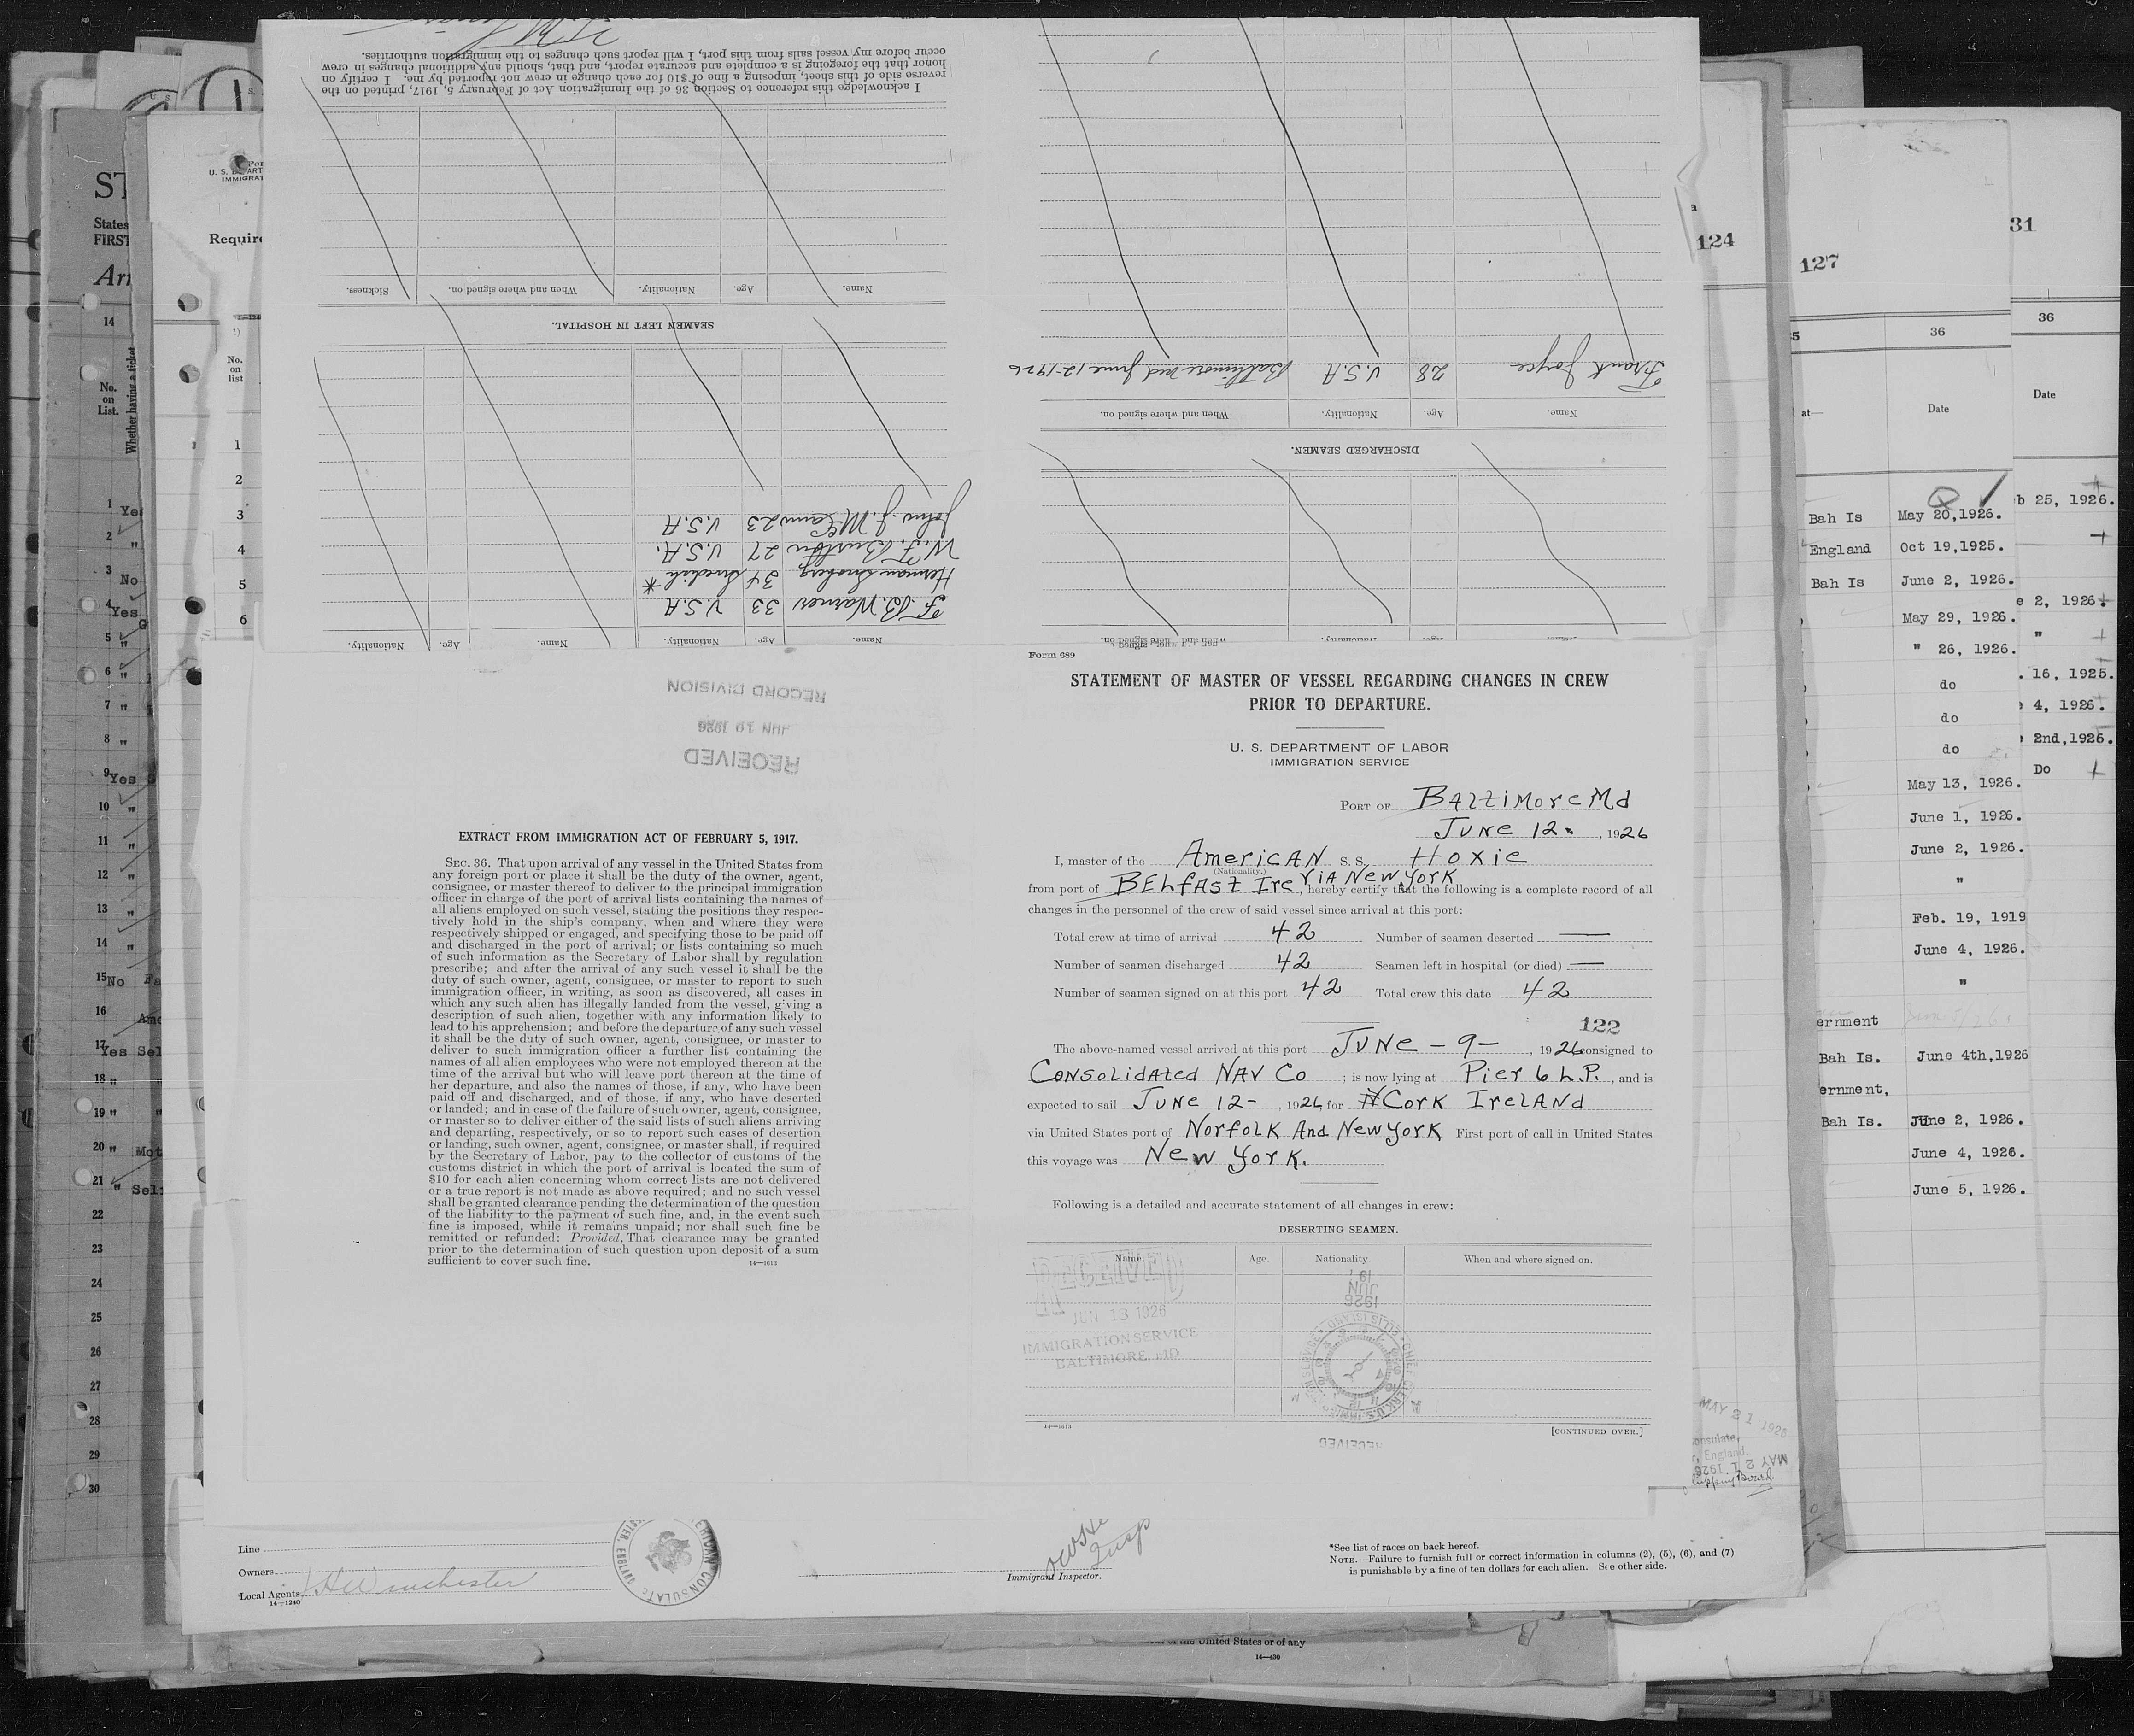 Form 689
STATEMENT OF MASTER OF VESSEL REGARDING CHANGES IN CREW
PRIOR TO DEPARTURE.
U. S. DEPARTMENT OF LABOR
IMMIGRATION SERVICE
PORT OF Baltimore Md
June 12. , 1926
I, master of the American S. S. Hoxie
(Nationality.)
from port of Belfast Ire Via New York, hereby certify that the following is a complete record of all
changes in the personnel of the crew of said vessel since arrival at this port:
Total crew at time of arrival 42 Number of seamen deserted —
Number of seamen discharged 42 Seamen left in hospital (or died) —
Number of seamen signed on at this port 42 Total crew this date 42
122
The above-named vessel arrived at this port June - 9 - , 1926 consigned to
Consolidated Nav Co ; is now lying at Pier 6 L.P. , and is
expected to sail June 12 - , 1926, for Cork Ireland
via United States port of Norfolk And New York First port of call in United States
this voyage was New York.
Following is a detailed and accurate statement of all changes in crew:
DESERTING SEAMEN.
Name. Age. Nationality When and where signed on.
RECEIVED
JUN 13 1926
IMMIGRATION SERVICE
BALTIMORE, MD
14—1613
[CONTINUED OVER.]
RECEIVED
RECEIVED
JUN 19 1926
RECORD DIVISION
EXTRACT FROM IMMIGRATION ACT OF FEBRUARY 5, 1917.
SEC. 36. That upon arrival of any vessel in the United States from
any foreign port or place it shall be the duty of the owner, agent,
consignee, or master thereof to deliver to the principal immigration
officer in charge of the port of arrival lists containing the names of
all aliens employed on such vessel, stating the positions they respec-
tively hold in the ship's company, when and where they were
respectively shipped or engaged, and specifying those to be paid off
and discharged in the port of arrival; or lists containing so much
of such information as the Secretary of Labor shall by regulation
prescribe; and after the arrival of any such vessel it shall be the
duty of such owner, agent, consignee, or master to report to such
immigration officer, in writing, as soon as discovered, all cases in
which any such alien has illegally landed from the vessel, giving a
description of such alien, together with any information likely to
lead to his apprehension; and before the departure of any such vessel
it shall be the duty of such owner, agent, consignee, or master to
deliver to such immigration officer a further list containing the
names of all alien employees who were not employed thereon at the
time of the arrival but who will leave port thereon at the time of
her departure, and also the names of those, if any, who have been
paid off and discharged, and of those, if any, who have deserted
or landed; and in case of the failure of such owner, agent, consignee,
or master so to deliver either of the said lists of such aliens arriving
and departing, respectively, or so to report such cases of desertion
or landing, such owner, agent, consignee, or master shall, if required
by the Secretary of Labor, pay to the collector of customs of the
customs district in which the port of arrival is located the sum of
$10 for each alien concerning whom correct lists are not delivered
or a true report is not made as above required; and no such vessel
shall be granted clearance pending the determination of the question
of the liability to the payment of such fine, and, in the event such
fine is imposed, while it remains unpaid; nor shall such fine be
remitted or refunded: Provided, That clearance may be granted
prior to the determination of such question upon deposit of a sum
sufficient to cover such fine.
14—1613
When and where signed on.
DISCHARGED SEAMEN.
Name. Age. Nationality. When and where signed on.
Frank Joyce 28 U.S.A Baltimore Md June 12-1926
Name. Age. Nationality. Name. Age. Nationality.
F. B. Warner 33 U.S.A
Herman 34 Swedish *
W. F. 27 U.S.A.
John J. McCann 23 U.S.A
SEAMEN LEFT IN HOSPITAL.
Name. Age. Nationality. When and where signed on. Sickness.
I acknowledge this reference to Section 36 of the Immigration Act of February 5, 1917, printed on the
reverse side of this sheet, imposing a fine of $10 for each change in crew not reported by me. I certify on
honor that the foregoing is a complete and accurate report, and that, should any additional changes in crew
occur before my vessel sails from this port, I will report such changes to the immigration authorities.
Line
Owners
Local Agents
14—1240
Immigrant Inspector.
*See list of races on back hereof.
NOTE.—Failure to furnish full or correct information in columns (2), (5), (6), and (7)
is punishable by a fine of ten dollars for each alien. See other side.
of the United States or of any
14—430
States
FIRST
14
No.
on
List.
Whether having a ticket
No.
on
list
1
2
3
4
5
6
124
127
36
at— Date
Bah Is May 20,1926.
England Oct 19,1925.
Bah Is June 2, 1926.
May 29, 1926.
" 26, 1926.
do
do
do
May 13, 1926.
June 1, 1926.
June 2, 1926.
"
Feb. 19, 1919
June 4, 1926.
"
ernment
Bah Is. June 4th,1926
ernment,
Bah Is. June 2, 1926.
June 4, 1926.
June 5, 1926.
31
36
Date
b 25, 1926.
e 2, 1926.
"
. 16, 1925.
4, 1926.
2nd,1926.
Do
MAY 21 1926